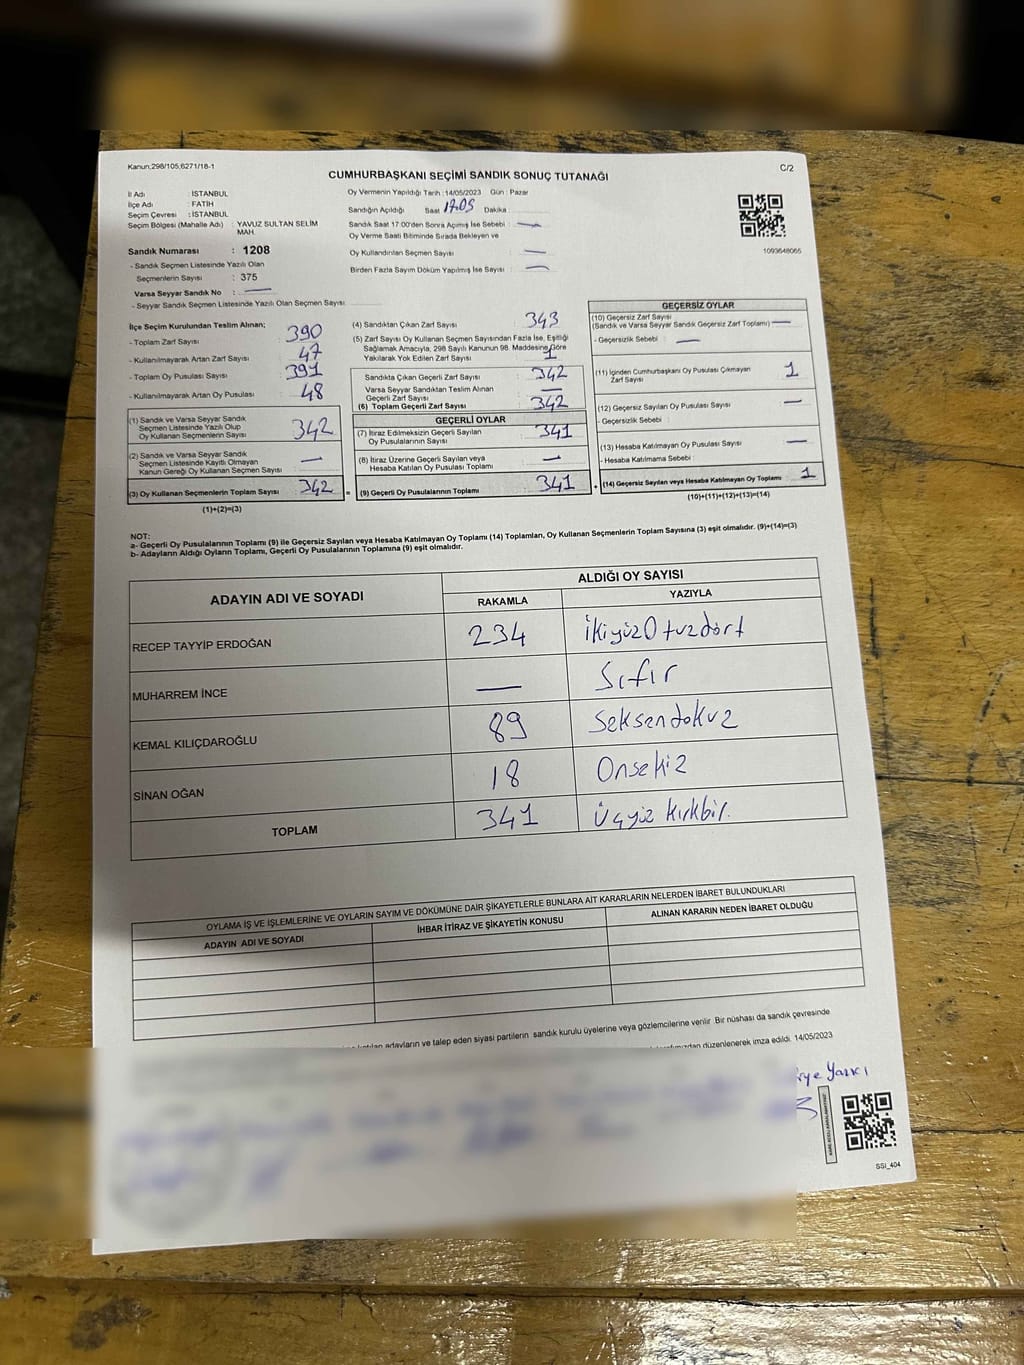 Kanun:298/105;6271/18-1
C/2
CUMHURBAŞKANI SEÇİMİ SANDIK SONUÇ TUTANAĞI
İl Adı : İSTANBUL
İlçe Adı : FATİH
Seçim Çevresi : İSTANBUL
Seçim Bölgesi (Mahalle Adı) : YAVUZ SULTAN SELİM MAH.
Sandık Numarası : 1208
- Sandık Seçmen Listesinde Yazılı Olan
Seçmenlerin Sayısı : 375
Varsa Seyyar Sandık No : —
- Seyyar Sandık Seçmen Listesinde Yazılı Olan Seçmen Sayısı
Oy Vermenin Yapıldığı Tarih : 14/05/2023 Gün : Pazar
Sandığın Açıldığı Saat 17.05 Dakika :
Sandık Saat 17:00'den Sonra Açılmış İse Sebebi : —
Oy Verme Saati Bitiminde Sırada Bekleyen ve
Oy Kullandırılan Seçmen Sayısı : —
Birden Fazla Sayım Döküm Yapılmış İse Sayısı : —
1093648065
İlçe Seçim Kurulundan Teslim Alınan;
- Toplam Zarf Sayısı : 390
- Kullanılmayarak Artan Zarf Sayısı : 47
- Toplam Oy Pusulası Sayısı : 391
- Kullanılmayarak Artan Oy Pusulası : 48
(1) Sandık ve Varsa Seyyar Sandık
Seçmen Listesinde Yazılı Olup
Oy Kullanan Seçmenlerin Sayısı : 342
(2) Sandık ve Varsa Seyyar Sandık
Seçmen Listesinde Kayıtlı Olmayan
Kanun Gereği Oy Kullanan Seçmen Sayısı : —
(3) Oy Kullanan Seçmenlerin Toplam Sayısı : 342
(1)+(2)=(3)
(4) Sandıktan Çıkan Zarf Sayısı : 343
(5) Zarf Sayısı Oy Kullanan Seçmen Sayısından Fazla İse, Eşitliği
Sağlamak Amacıyla, 298 Sayılı Kanunun 98. Maddesine Göre
Yakılarak Yok Edilen Zarf Sayısı : 1
Sandıkta Çıkan Geçerli Zarf Sayısı : 342
Varsa Seyyar Sandıktan Teslim Alınan
Geçerli Zarf Sayısı : —
(6) Toplam Geçerli Zarf Sayısı : 342
GEÇERLİ OYLAR
(7) İtiraz Edilmeksizin Geçerli Sayılan
Oy Pusulalarının Sayısı : 341
(8) İtiraz Üzerine Geçerli Sayılan veya
Hesaba Katılan Oy Pusulası Toplamı : —
= (9) Geçerli Oy Pusulalarının Toplamı : 341
GEÇERSİZ OYLAR
(10) Geçersiz Zarf Sayısı
(Sandık ve Varsa Seyyar Sandık Geçersiz Zarf Toplamı) : —
- Geçersizlik Sebebi : —
(11) İçinden Cumhurbaşkanı Oy Pusulası Çıkmayan
Zarf Sayısı : 1
(12) Geçersiz Sayılan Oy Pusulası Sayısı : —
- Geçersizlik Sebebi :
(13) Hesaba Katılmayan Oy Pusulası Sayısı : —
- Hesaba Katılmama Sebebi :
+ (14) Geçersiz Sayılan veya Hesaba Katılmayan Oy Toplamı : 1
(10)+(11)+(12)+(13)=(14)
NOT:
a- Geçerli Oy Pusulalarının Toplamı (9) ile Geçersiz Sayılan veya Hesaba Katılmayan Oy Toplamı (14) Toplamları, Oy Kullanan Seçmenlerin Toplam Sayısına (3) eşit olmalıdır. (9)+(14)=(3)
b- Adayların Aldığı Oyların Toplamı, Geçerli Oy Pusulalarının Toplamına (9) eşit olmalıdır.
ADAYIN ADI VE SOYADI
ALDIĞI OY SAYISI
RAKAMLA YAZIYLA
RECEP TAYYİP ERDOĞAN 234 İkiyüzOtuzdört
MUHARREM İNCE — Sıfır
KEMAL KILIÇDAROĞLU 89 Seksendokuz
SİNAN OĞAN 18 Onsekiz
TOPLAM 341 Üçyüz kırkbir.
OYLAMA İŞ VE İŞLEMLERİNE VE OYLARIN SAYIM VE DÖKÜMÜNE DAİR ŞİKAYETLERLE BUNLARA AİT KARARLARIN NELERDEN İBARET BULUNDUKLARI
ADAYIN ADI VE SOYADI İHBAR İTİRAZ VE ŞİKAYETİN KONUSU ALINAN KARARIN NEDEN İBARET OLDUĞU
adayların ve talep eden siyasi partilerin sandık kurulu üyelerine veya gözlemcilerine verilir. Bir nüshası da sandık çevresinde
düzenlenerek imza edildi. 14/05/2023
Yazıcı
SSI_404